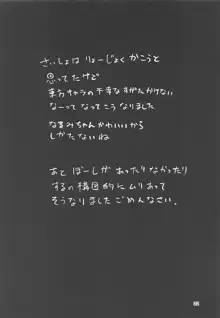 さいしょは りょーじょく かこうと
思ってたけど
東方キャラの不幸なすがたかけない
なーって なってこうなりました
なるみちゃんかわいいから
しかたないね
あと ぼーしが あったりなかったり
するの構図的に ムリあって
そうなりました ごめんなさい。